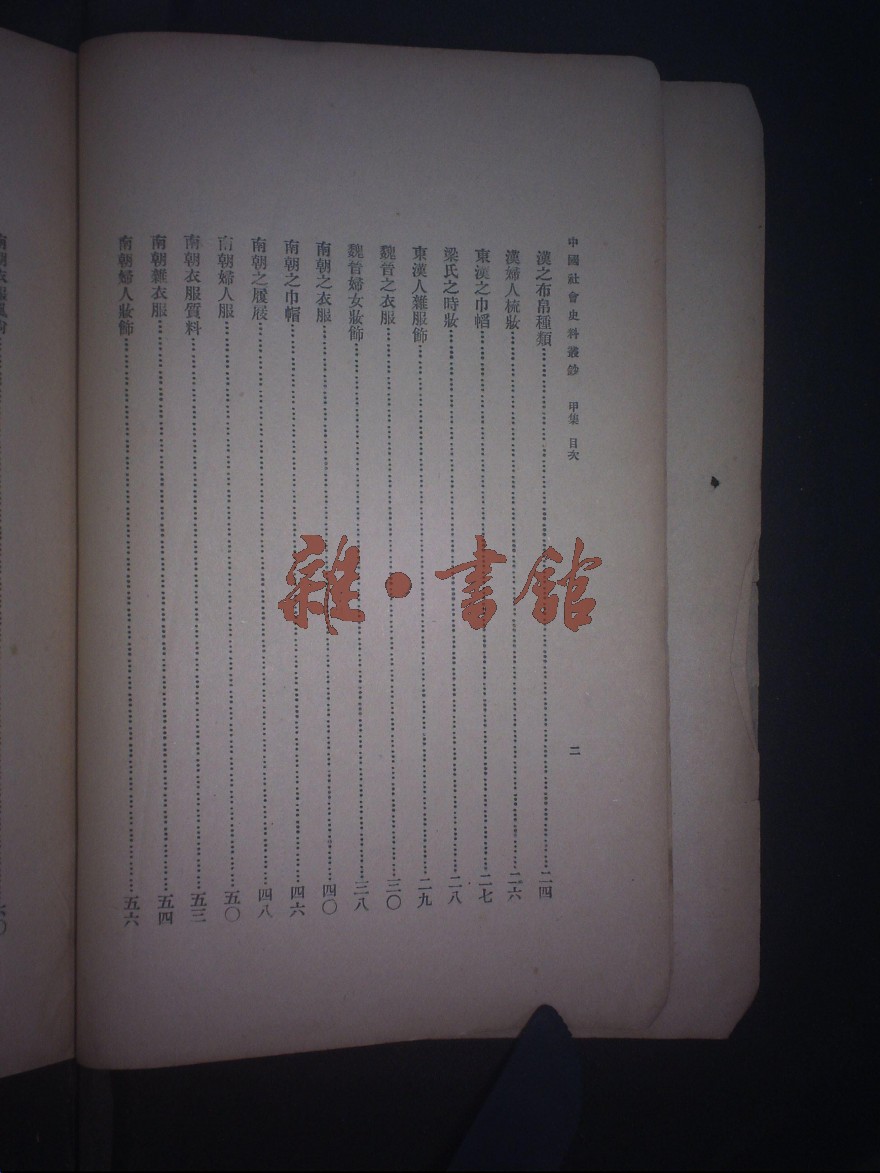 中國社會史料叢鈔 甲集 目次 二
漢之布帛種類……二四
漢婦人梳妝……二六
東漢之巾幍……二七
梁氏之時妝……二八
東漢人雜服飾……二九
魏晉之衣服……三〇
魏晉婦女妝飾……三八
南朝之衣服……四〇
南朝之巾帽……四六
南朝之履屐……四八
南朝婦人服……五〇
南朝衣服質料……五三
南朝雜衣服……五四
南朝婦人妝飾……五六
雜·書館